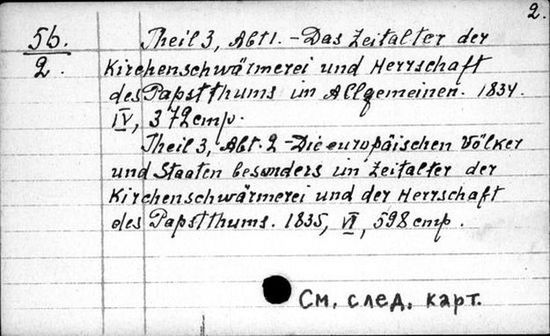 2.
56.
2.
Theil 3, Abt 1. - Das Zeitalter der
Kirchenschwärmerei und Herrschaft
des Papstthums im Allgemeinen. 1834.
IV, 372 стр.
Theil 3, Abt. 2 - Die europäischen Völker
und Staaten besonders im Zeitalter der
Kirchenschwärmerei und der Herrschaft
des Papstthums. 1835, VI, 598 стр.
См. след. карт.